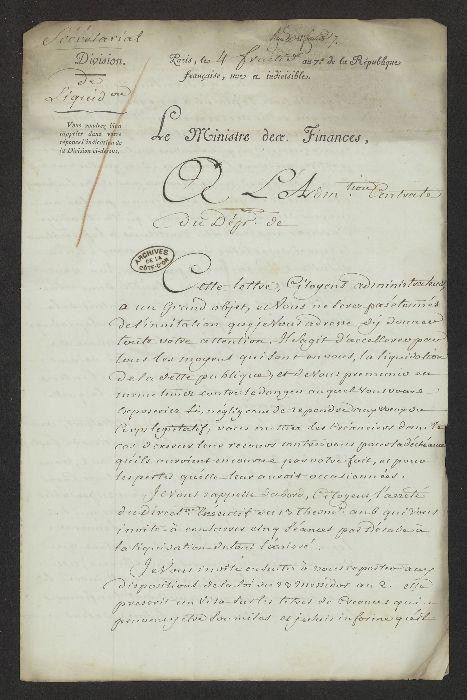 Secrétariat
Division.
de
Liquid on
Vous voudrez bien
rappeler dans votre
réponse l'indication de
la Division ci-dessus.
Paris, le 4 fructidor an 7e. de la République
française, une et indivisible.
Le Ministre des Finances,
A L'Adm.tion Centrale
du Dépt. de
ARCHIVES
DE LA
CÔTE-D'OR
Cette lettre, Citoyens administrateurs
a un Grand objet, et Vous ne serez pas étonnés
de l'invitation que je Vous adresse d'y donner
toute votre attention. Il s'agit d'accellerer par
tous les moyens qui sont en vous, la liquidation
de la dette publique, et de Vous premunir en
même tems contre le danger auquel Vous vous
exposeriez si, negligeant de repondre aux voeux du
Corps legislatif, vous mettiez les Créanciers dans le
cas d'exercer leur recours contre vous pour la déchéance
qu'ils auroient encourue par votre fait, et pour
les pertes qu'elle leur auroit occasionnées.
Je Vous rappelle d'abord, Citoyens, l'arrêté
du Direct.re Executif du 13 Thermr. an 6 qui vous
invite à consacrer cinq séances par Décade à
la liquidation de l'arriéré.
Je Vous invite ensuite à vous reporter aux
dispositions de la loi du 23 Messidor an 2. elle
prescrit un Visa sur les titres de Creances qui
peuvent y être soumises et je suis informé qu'il